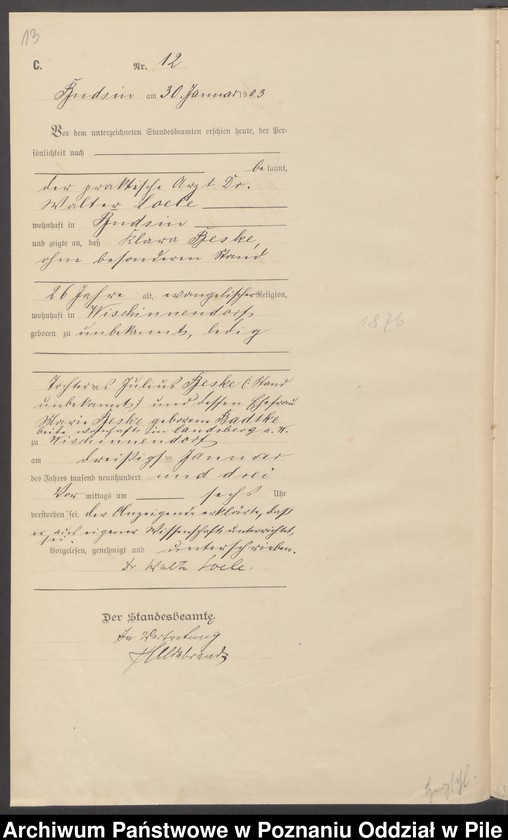 13
C.
Nr. 12
Budsin am 30. Januar 1903
Vor dem unterzeichneten Standesbeamten erschien heute, der Per-
sönlichkeit nach
bekannt,
der praktische Arzt Dr.
Walter Loele
wohnhaft in Budsin
und zeigte an, daß Klara Beske,
ohne besonderen Stand
26 Jahre alt, evangelischer Religion,
wohnhaft in Wischinnendorf
geboren zu unbekannt, ledig
1876
Tochter des Julius Beske (Stand
unbekannt) und dessen Ehefrau
Marie Beske geborene Radtke
beide wohnhaft in Landsberg a. W.
zu Wischinnendorf
am dreißigsten Januar
des Jahres tausend neunhundert und drei
Vor mittags um sechs Uhr
verstorben sei. Der Anzeigende erklärte, daß
er aus eigener Wissenschaft unterrichtet
sei.
Vorgelesen, genehmigt und unterschrieben.
Dr. Walter Loele.
Der Standesbeamte.
In Vertretung
Hildebrandt
Archiwum Państwowe w Poznaniu Oddział w Pile